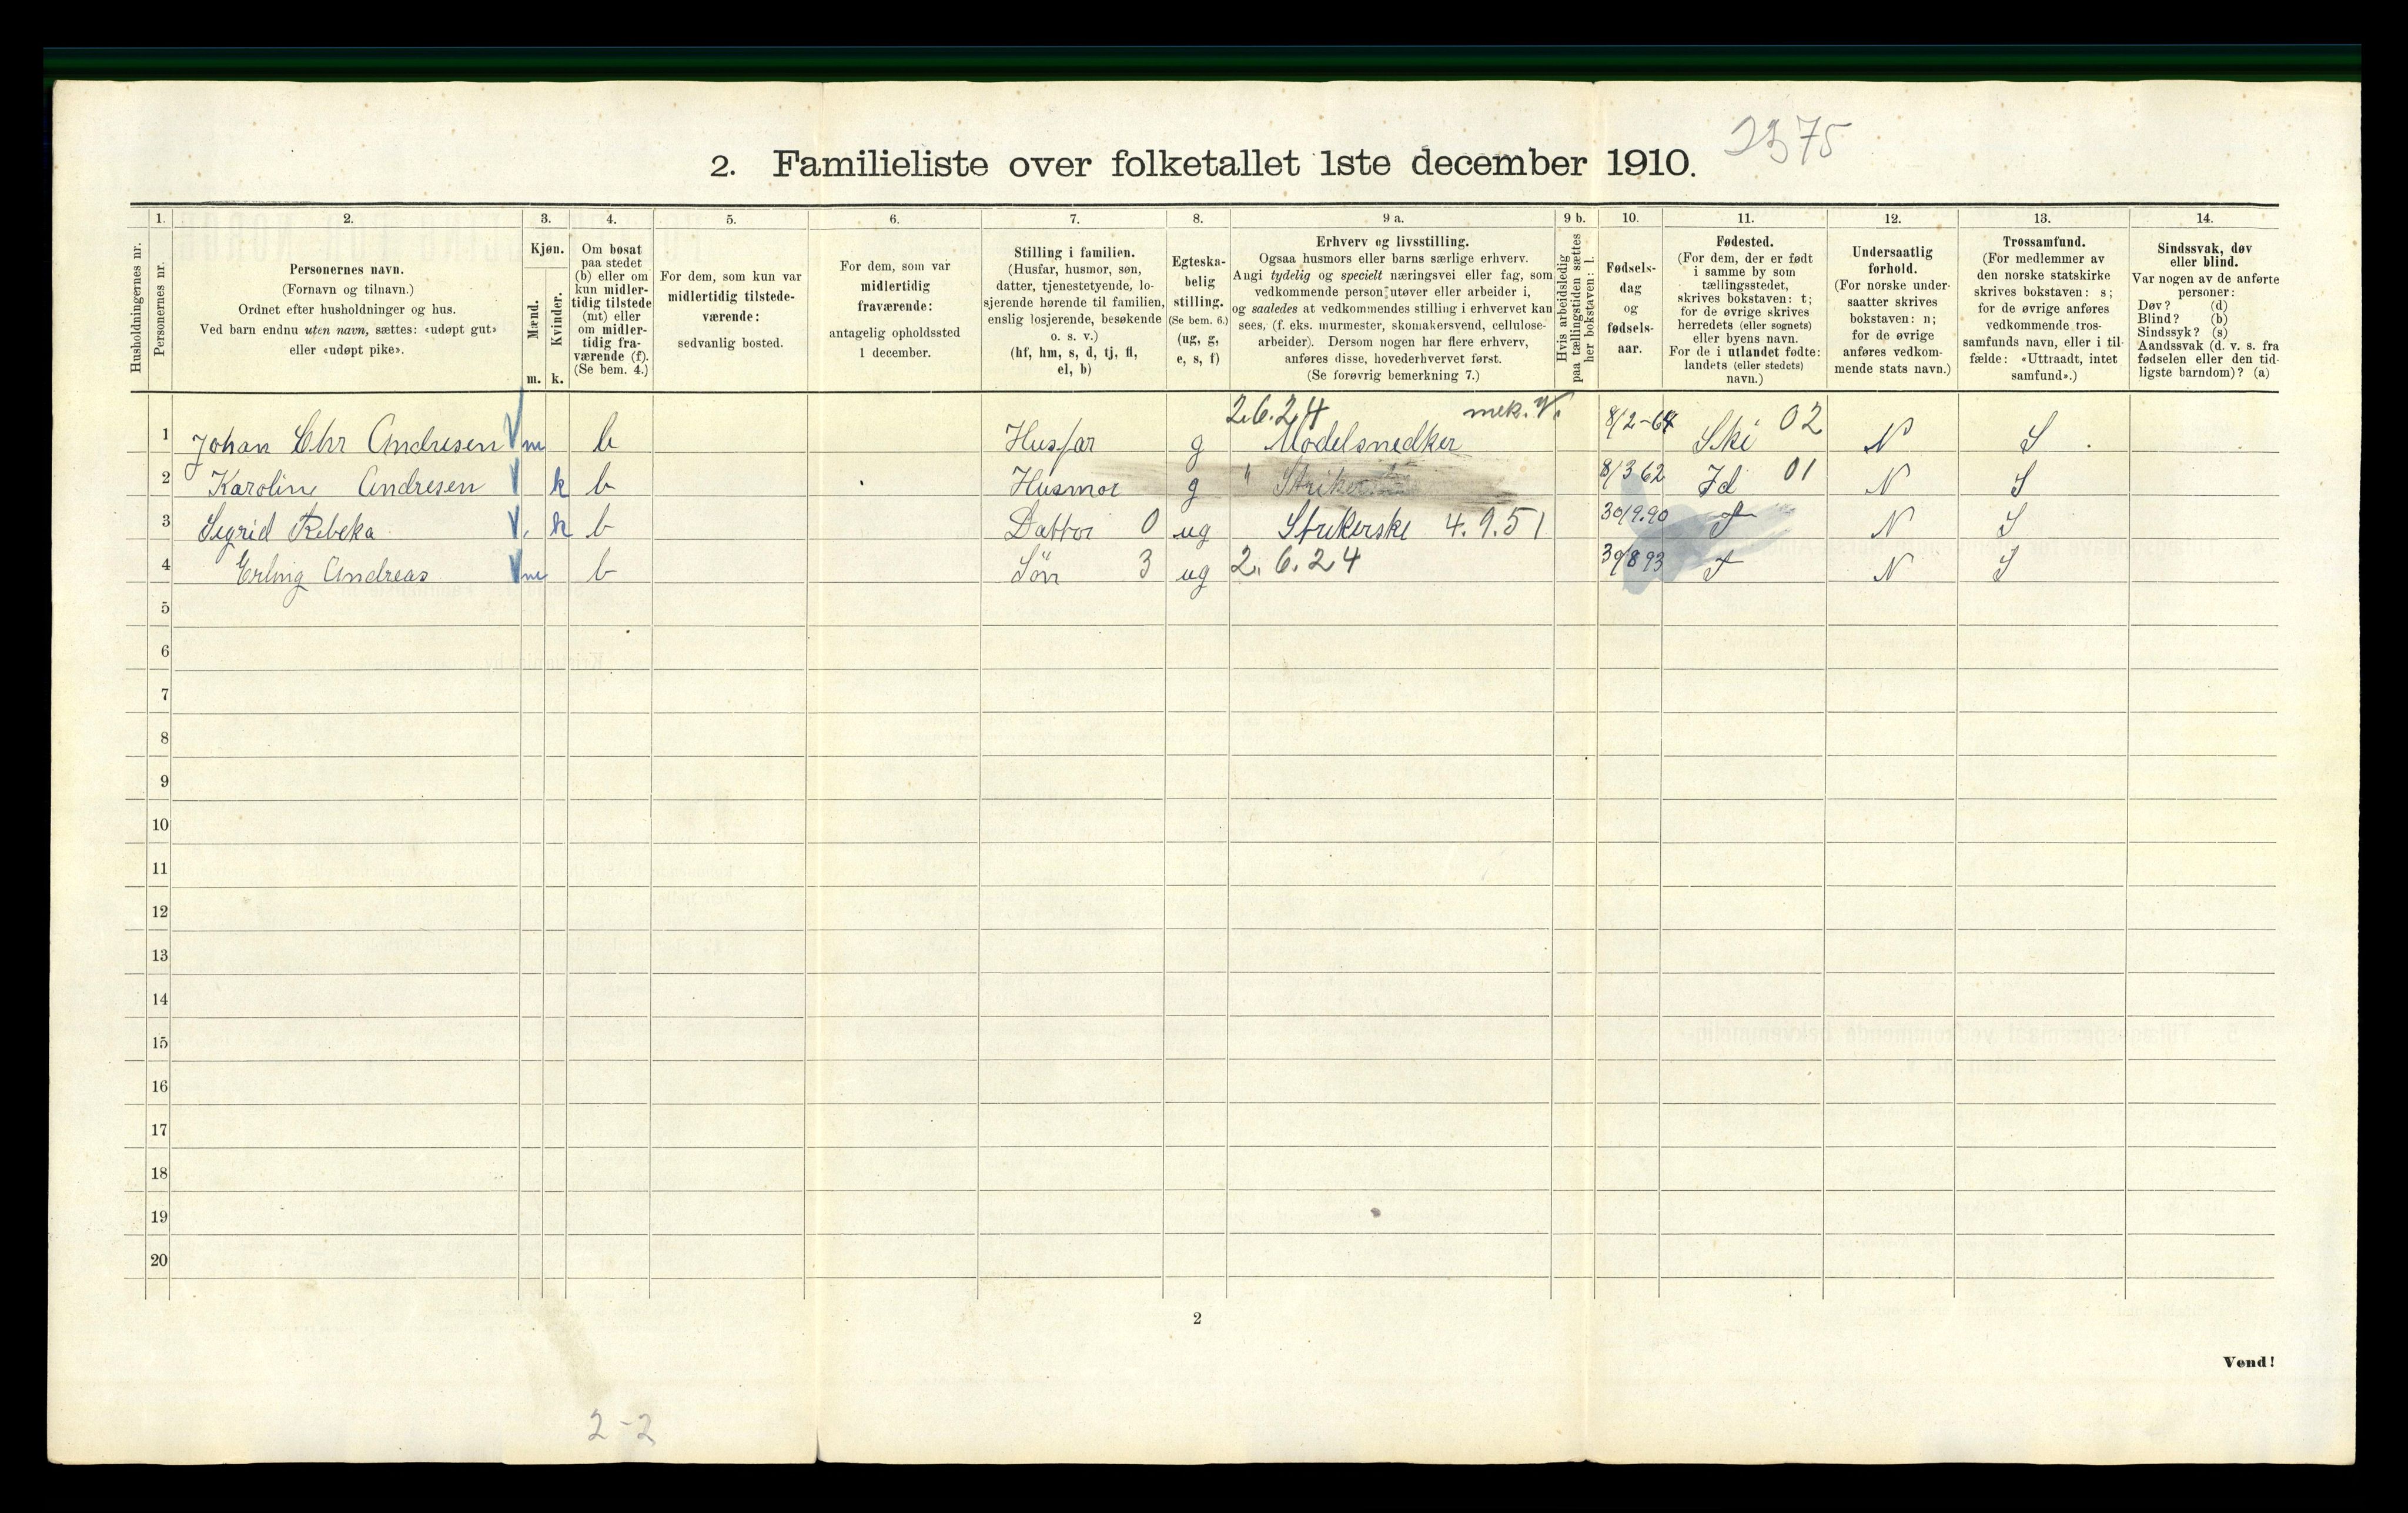 2375
2. Familieliste over folketallet 1ste december 1910.
1. 2. 3. 4. 5. 6. 7. 8. 9 a. 9 b. 10. 11. 12. 13. 14.
Husholdningernes nr.
Personernes nr.
Personernes navn.
(Fornavn og tilnavn.)
Ordnet efter husholdninger og hus.
Ved barn endnu uten navn, sættes: «udøpt gut»
eller «udøpt pike».
Kjøn.
Mænd.
Kvinder.
m. k.
Om bosat
paa stedet
(b) eller om
kun midler-
tidig tilstede
(mt) eller
om midler-
tidig fra-
værende (f).
(Se bem. 4.)
For dem, som kun var
midlertidig tilstede-
værende:
sedvanlig bosted.
For dem, som var
midlertidig
fraværende:
antagelig opholdssted
1 december.
Stilling i familien.
(Husfar, husmor, søn,
datter, tjenestetyende, lo-
sjerende hørende til familien,
enslig losjerende, besøkende
o. s. v.)
(hf, hm, s, d, tj, fl,
el, b)
Egteska-
belig
stilling.
(Se bem. 6.)
(ug, g,
e, s, f)
Erhverv og livsstilling.
Ogsaa husmors eller barns særlige erhverv.
Angi tydelig og specielt næringsvei eller fag, som
vedkommende person utøver eller arbeider i,
og saaledes at vedkommendes stilling i erhvervet kan
sees, (f. eks. murmester, skomakersvend, cellulose-
arbeider). Dersom nogen har flere erhverv,
anføres disse, hovederhvervet først.
(Se forøvrig bemerkning 7.)
Hvis arbeidsledig
paa tællingstiden sættes
her bokstaven: l.
Fødsels-
dag
og
fødsels-
aar.
Fødested.
(For dem, der er født
i samme by som
tællingsstedet,
skrives bokstaven: t;
for de øvrige skrives
herredets (eller sognets)
eller byens navn.
For de i utlandet fødte:
landets (eller stedets)
navn.)
Undersaatlig
forhold.
(For norske under-
saatter skrives
bokstaven: n;
for de øvrige
anføres vedkom-
mende stats navn.)
Trossamfund.
(For medlemmer av
den norske statskirke
skrives bokstaven: s;
for de øvrige anføres
vedkommende tros-
samfunds navn, eller i til-
fælde: «Uttraadt, intet
samfund».)
Sindssvak, døv
eller blind.
Var nogen av de anførte
personer:
Døv? (d)
Blind? (b)
Sindssyk? (s)
Aandssvak (d. v. s. fra
fødselen eller den tid-
ligste barndom)? (a)
2.6.24 mek. V.
1 Johan Chr Andresen m b Husfar g Modelsnedker 8/2-64 Ski 02 N S
2 Karoline Andresen k b Husmor g " 8/3 62 Id 01 N S
3 Sigrid Rebeka k b Datter 0 ug Strikerske 4.9.51 30/9.90 t N S
4 Erling Andreas m b Søn 3 ug 2.6.24 30/8 93 t N S
5
6
7
8
9
10
11
12
13
14
15
16
17
18
19
20
2
Vend!
2-2